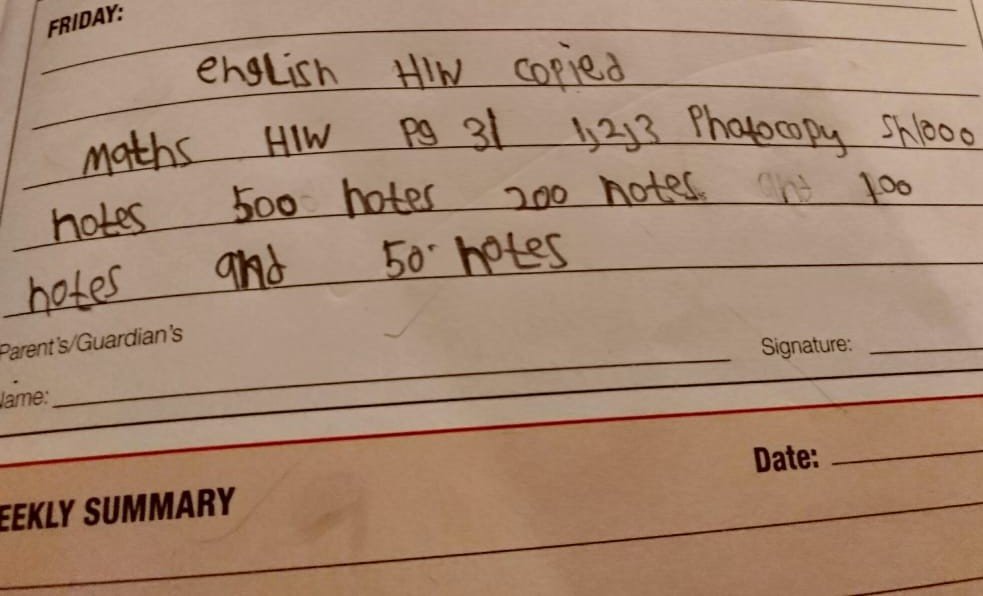 FRIDAY:
english H/W copied
maths H/W Pg 31 1,2,3 Photocopy Sh1000
notes 500 notes 200 notes and 100
notes and 50 notes
Parent's/Guardian's
Name: Signature:
Date:
EEKLY SUMMARY